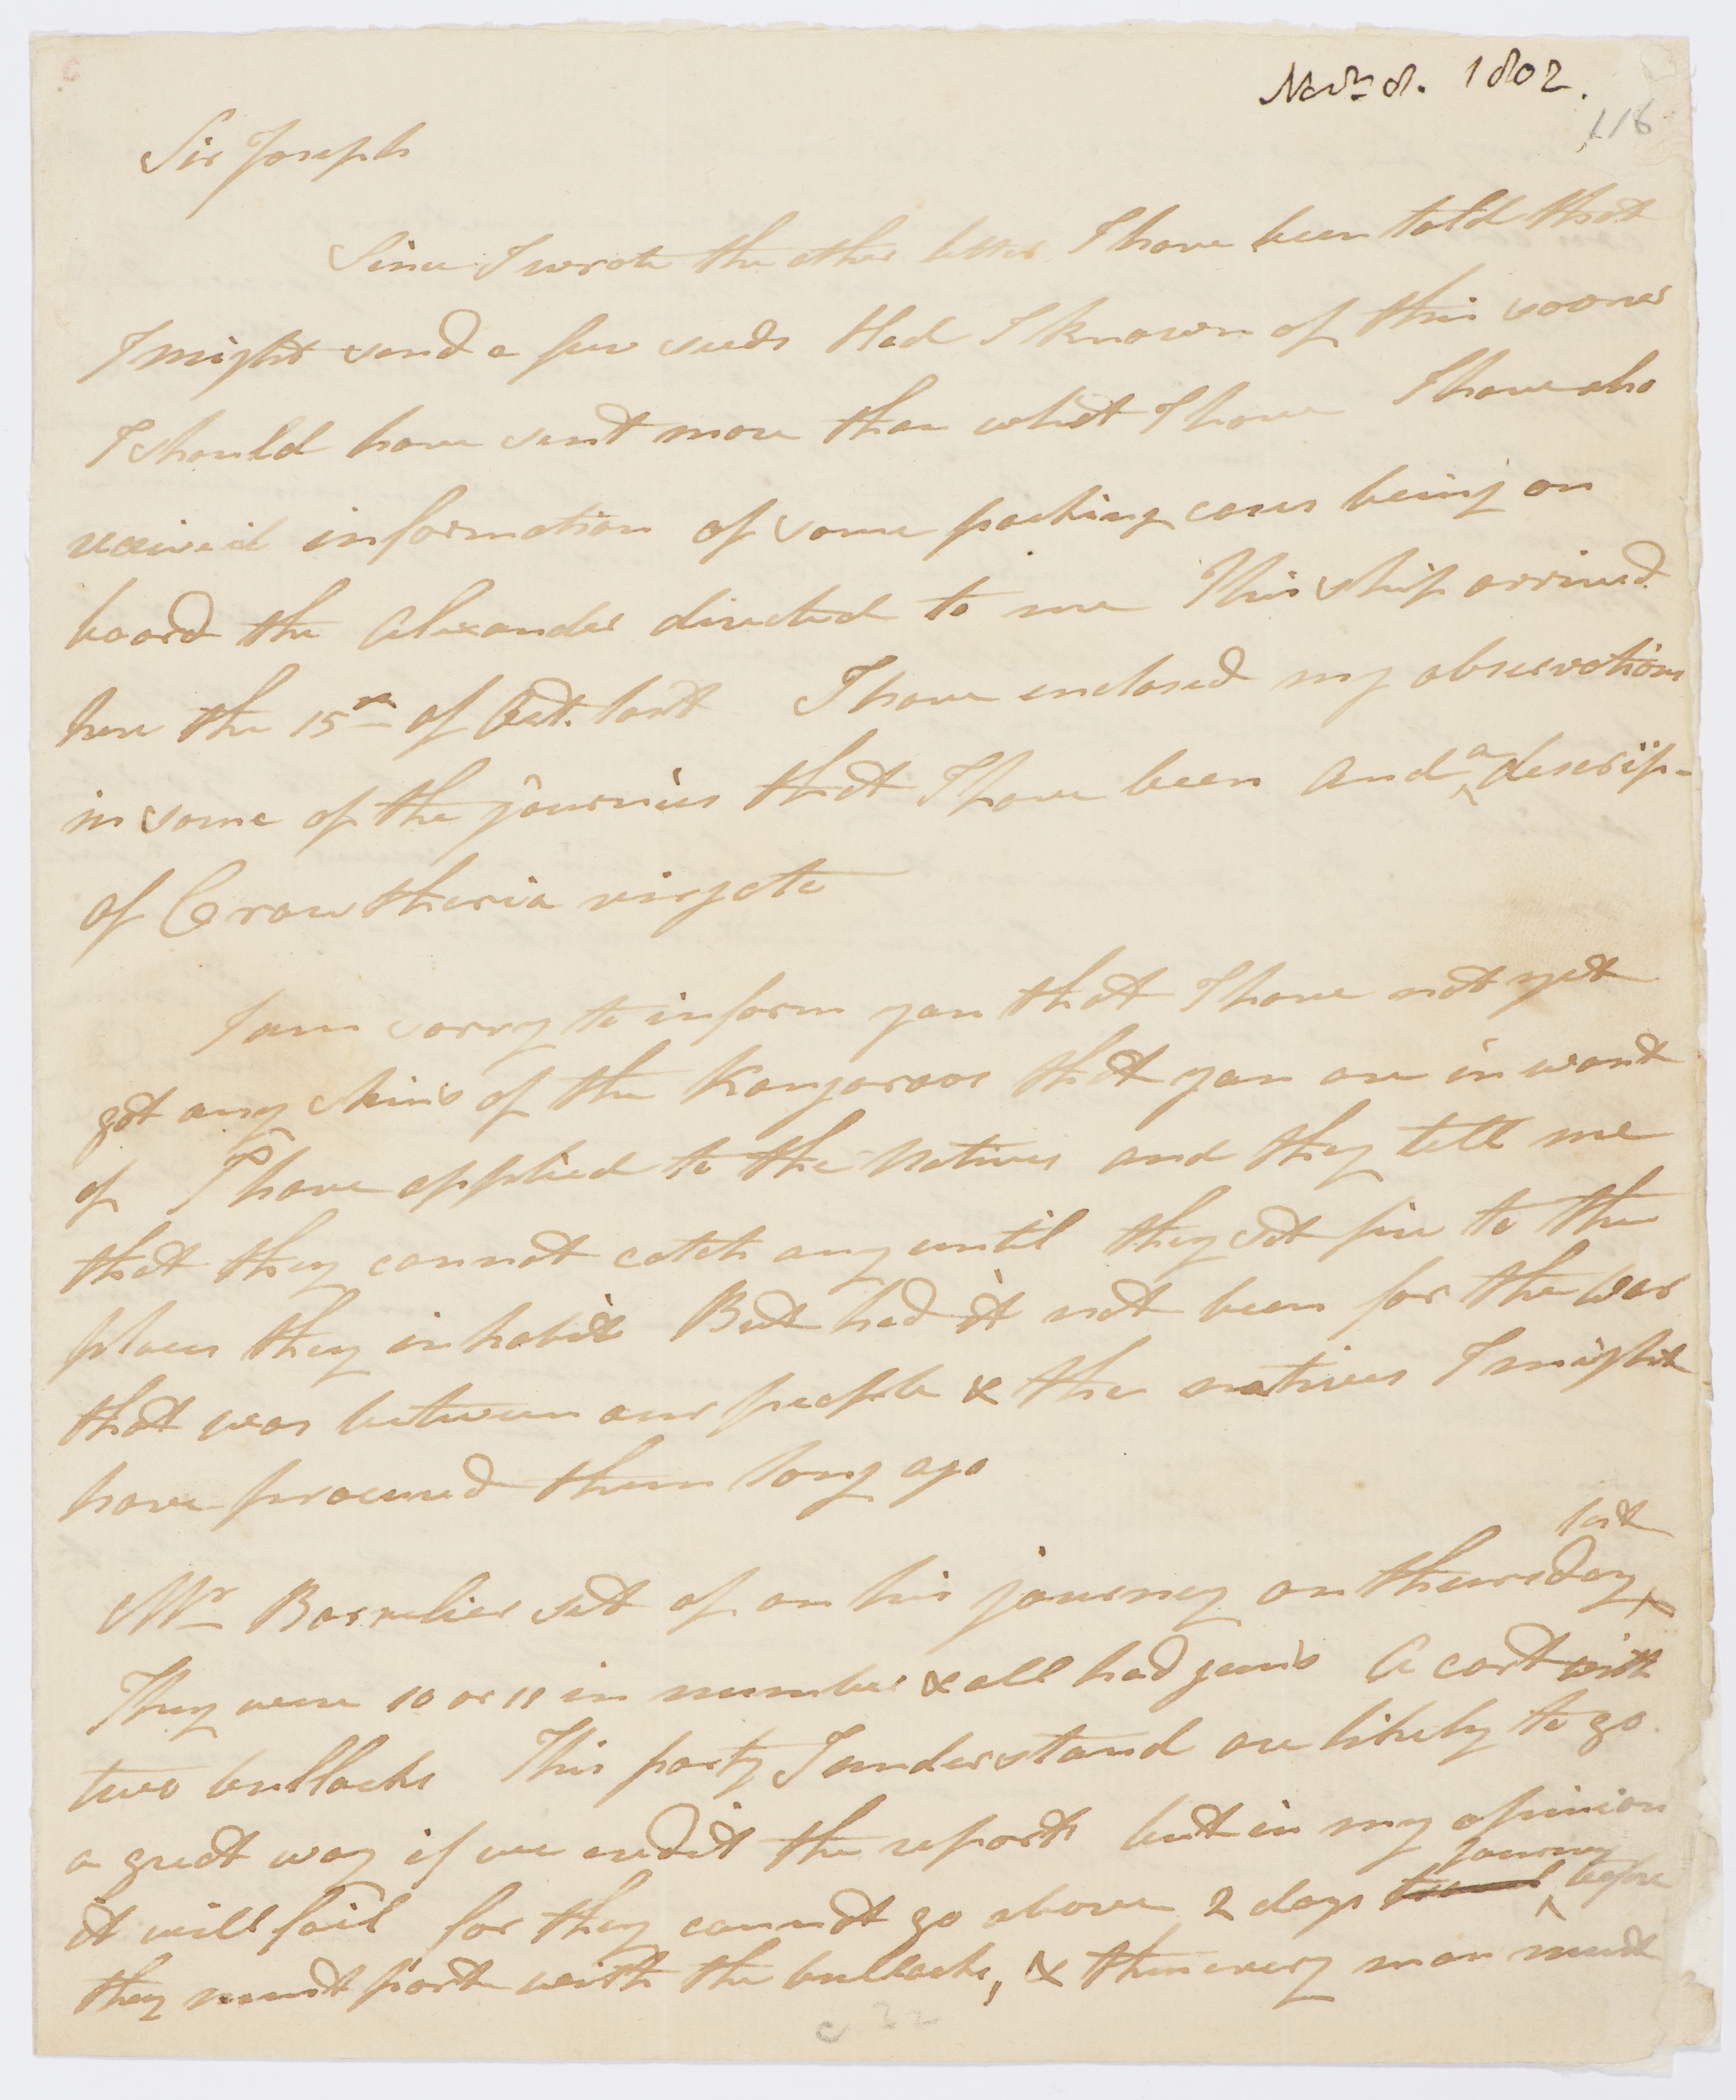 Novr. 8. 1802.
116
Sir Joseph
Since I wrote the other letter I have been told that
I might send a few seeds Had I known of this sooner
I should have sent more than what I have I have also
received information of some packing cases being on
board the Alexander directed to me This ship arrived
here the 15th of Oct. last I have enclosed my observations
in some of the journies that I have been and a descrip-
of Crowtheria virgata
I am sorry to inform you that I have not yet
got any skins of the Kangaroos that you are in want
of I have applied to the Natives and they tell me
that they cannot catch any until they set fire to the
places they inhabit But had it not been for the war
that was between our people & the natives I might
have procured them long ago
last
Mr Barrelier set of on his journey on thursday
They were 10 or 11 in number & all had guns A cart with
two bullocks This party I understand are likely to go
a great way if we credit the reports but in my opinion
journey
it will fail for they cannot go above 2 days travel before
they must part with the bullocks, & then every man must
C 22